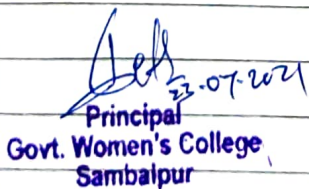 23.07.2021
Principal
Govt. Women's College
Sambalpur